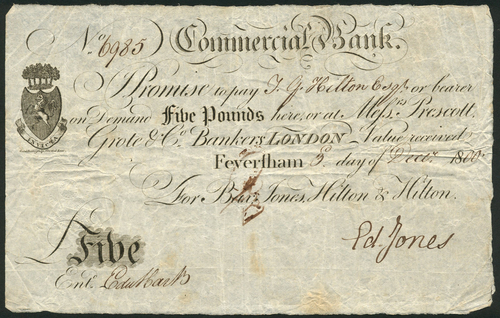 No 6985 Commercial Bank.
I Promise to pay T. G. Hilton Esqr. or bearer
on Demand Five Pounds here, or at Messrs Prescott
Grote & Co. Bankers LONDON Value received
INVICTA
Feversham 5 day of Decr. 1800
For Bax, Jones, Hilton & Hilton.
Five
Ed. Jones
Entd.